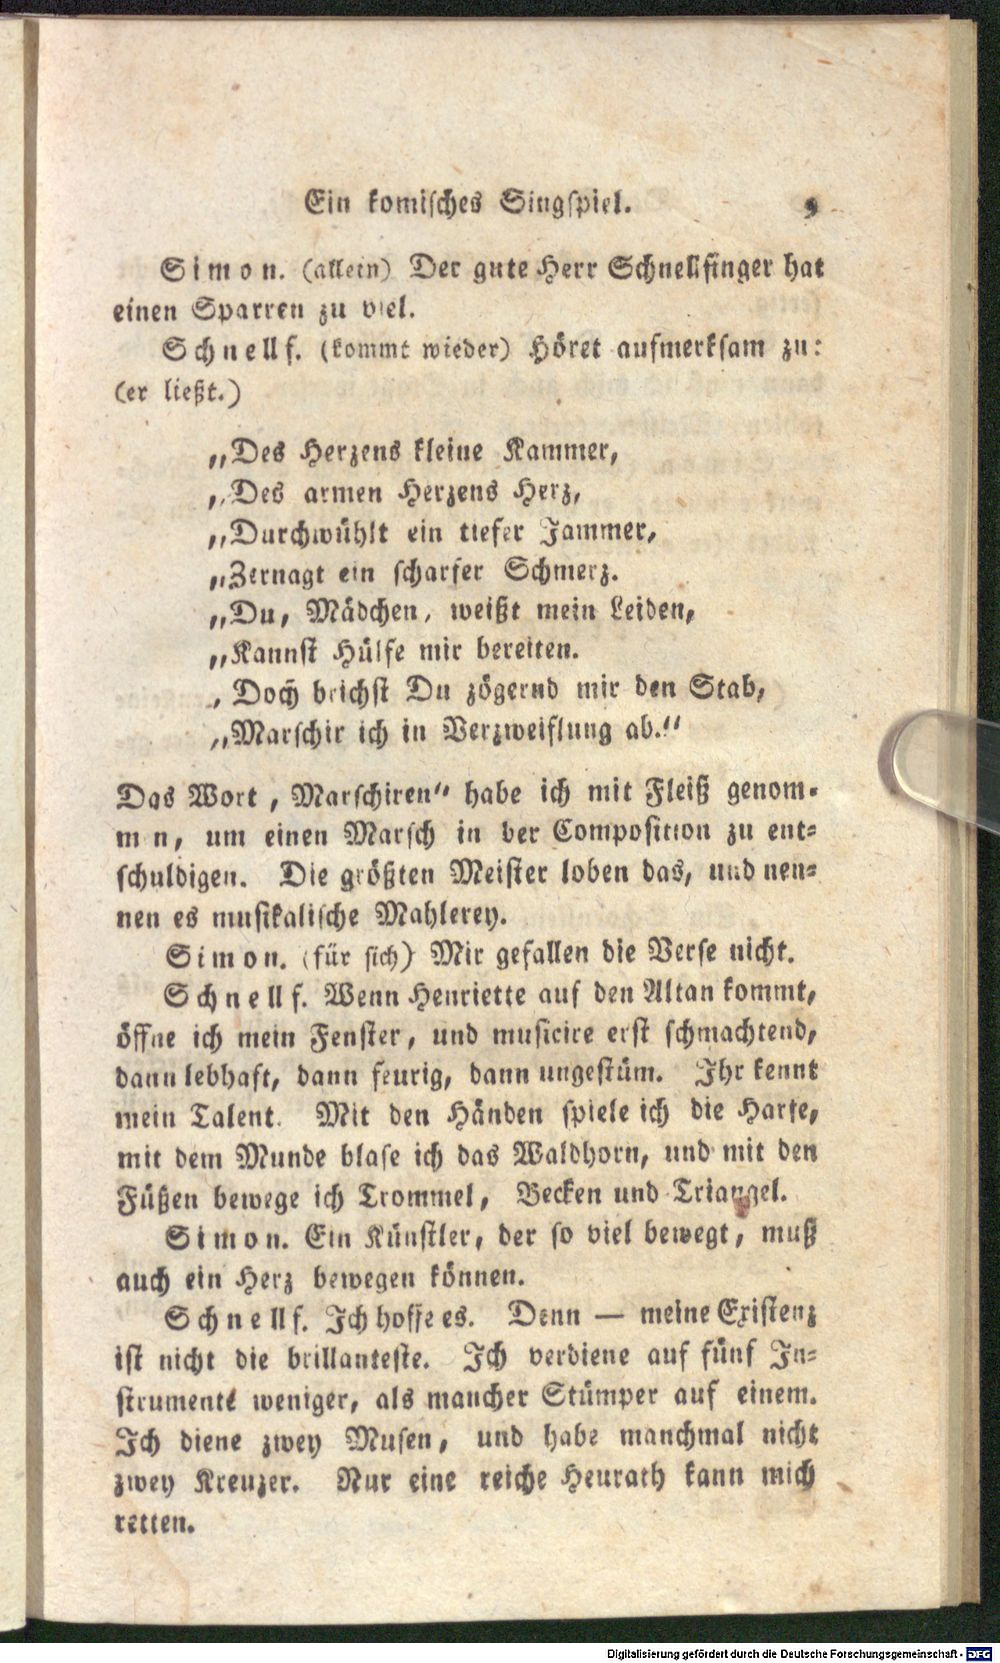 Ein komisches Singspiel. 9
Simon. (allein) Der gute Herr Schnellfinger hat
einen Sparren zu viel.
Schnellf. (kommt wieder) Höret aufmerksam zu:
(er ließt.)
„Des Herzens kleine Kammer,
„Des armen Herzens Herz,
„Durchwühlt ein tiefer Jammer,
„Zernagt ein scharfer Schmerz.
„Du, Mädchen, weißt mein Leiden,
„Kannst Hülfe mir bereiten.
„Doch brichst Du zögernd mir den Stab,
„Marschir ich in Verzweiflung ab.“
Das Wort „Marschiren“ habe ich mit Fleiß genom-
m n, um einen Marsch in der Composition zu ent-
schuldigen. Die größten Meister loben das, und nen-
nen es musikalische Mahlerey.
Simon. (für sich) Mir gefallen die Verse nicht.
Schnellf. Wenn Henriette auf den Altan kommt,
öffne ich mein Fenster, und musicire erst schmachtend,
dann lebhaft, dann feurig, dann ungestüm. Ihr kennt
mein Talent. Mit den Händen spiele ich die Harfe,
mit dem Munde blase ich das Waldhorn, und mit den
Füßen bewege ich Trommel, Becken und Triangel.
Simon. Ein Künstler, der so viel bewegt, muß
auch ein Herz bewegen können.
Schnellf. Ich hoffe es. Denn — meine Existenz
ist nicht die brillanteste. Ich verdiene auf fünf In-
strumente weniger, als mancher Stümper auf einem.
Ich diene zwey Musen, und habe manchmal nicht
zwey Kreuzer. Nur eine reiche Heurath kann mich
retten.
Digitalisierung gefördert durch die Deutsche Forschungsgemeinschaft - DFG